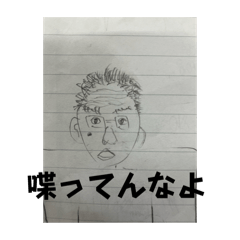 喋ってんなよ